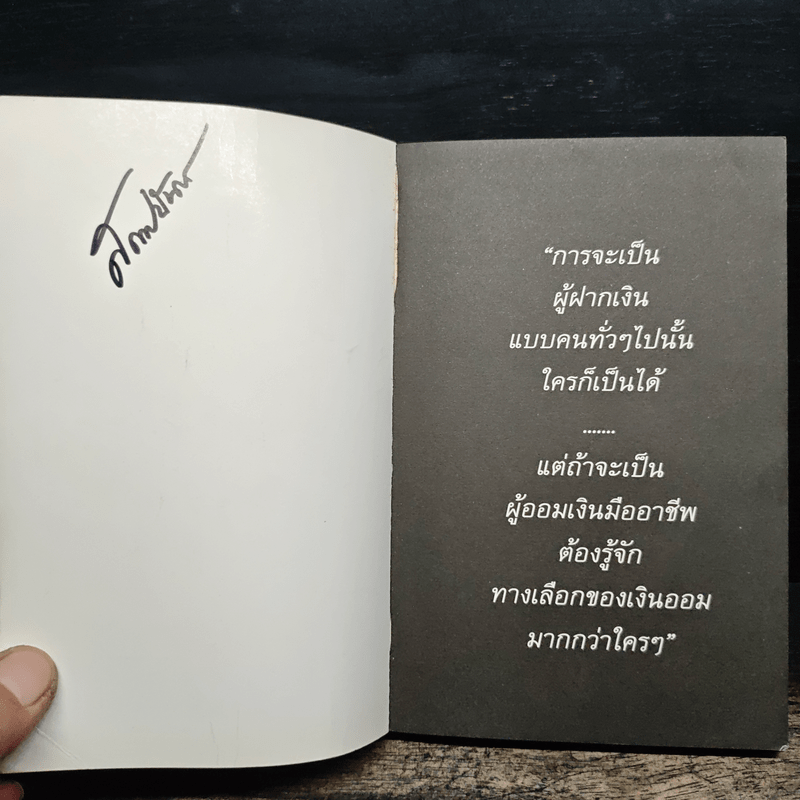 “การจะเป็น
ผู้ฝากเงิน
แบบคนทั่วๆไปนั้น
ใครก็เป็นได้
.......
แต่ถ้าจะเป็น
ผู้ออมเงินมืออาชีพ
ต้องรู้จัก
ทางเลือกของเงินออม
มากกว่าใครๆ”